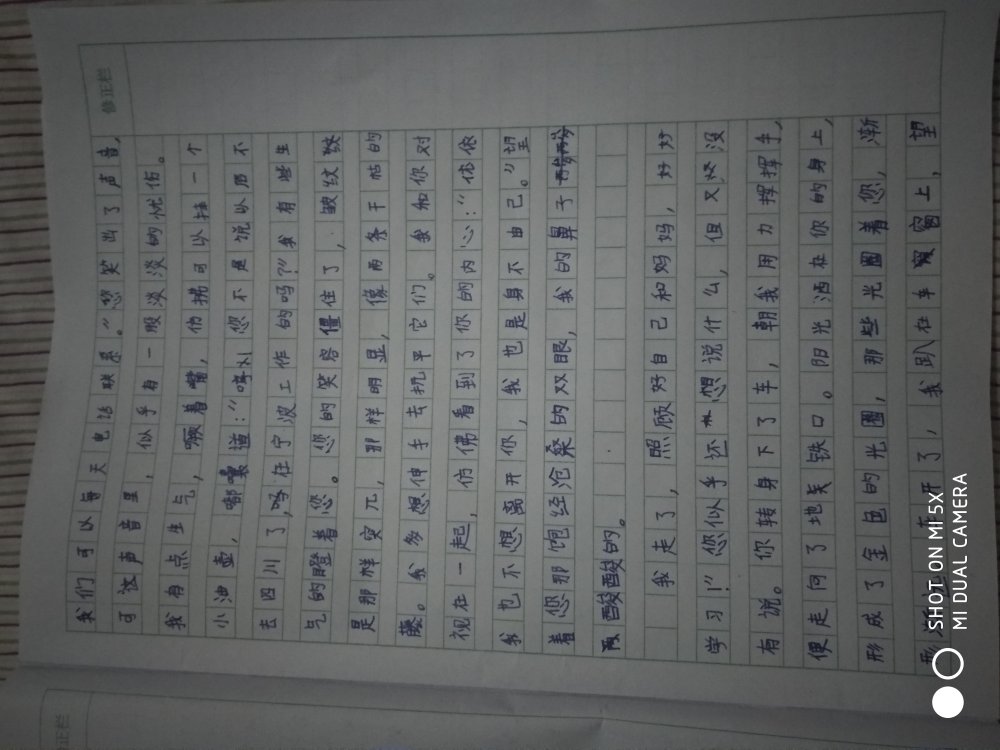 修正栏
我们可以每天电话联系。”您笑出了声音，
可这声音里，似乎有一股淡淡的忧伤。
我有点生气，噘着嘴，仿拂可以挂一个
小油壶，嘟囔道：“您不是说以后不
去四川了，在宁波工作的吗？”我有些生
气的瞪着您。您的笑容僵住了，皱纹
是那样突兀，那样明显，像两条干枯的
藤。我多想伸手去抚平它们。我和你对
视在一起，仿佛看到了你的内心：“
我也不想离开你，我也是身不由己。”望
着您那饱经沧桑的双眼，我的鼻子
酸酸的。
我走了，照顾好自己和妈妈，好好
学习！”您似乎还想说什么，但又没
有说。你转身下了车，朝我用力挥挥手，
便走向了地铁口。阳光洒在你的身上，
形成了金色的光圈，那些光圈着您，渐
开了，我趴在车窗上，望
正栏
SHOT ON MI 5X
MI DUAL CAMERA